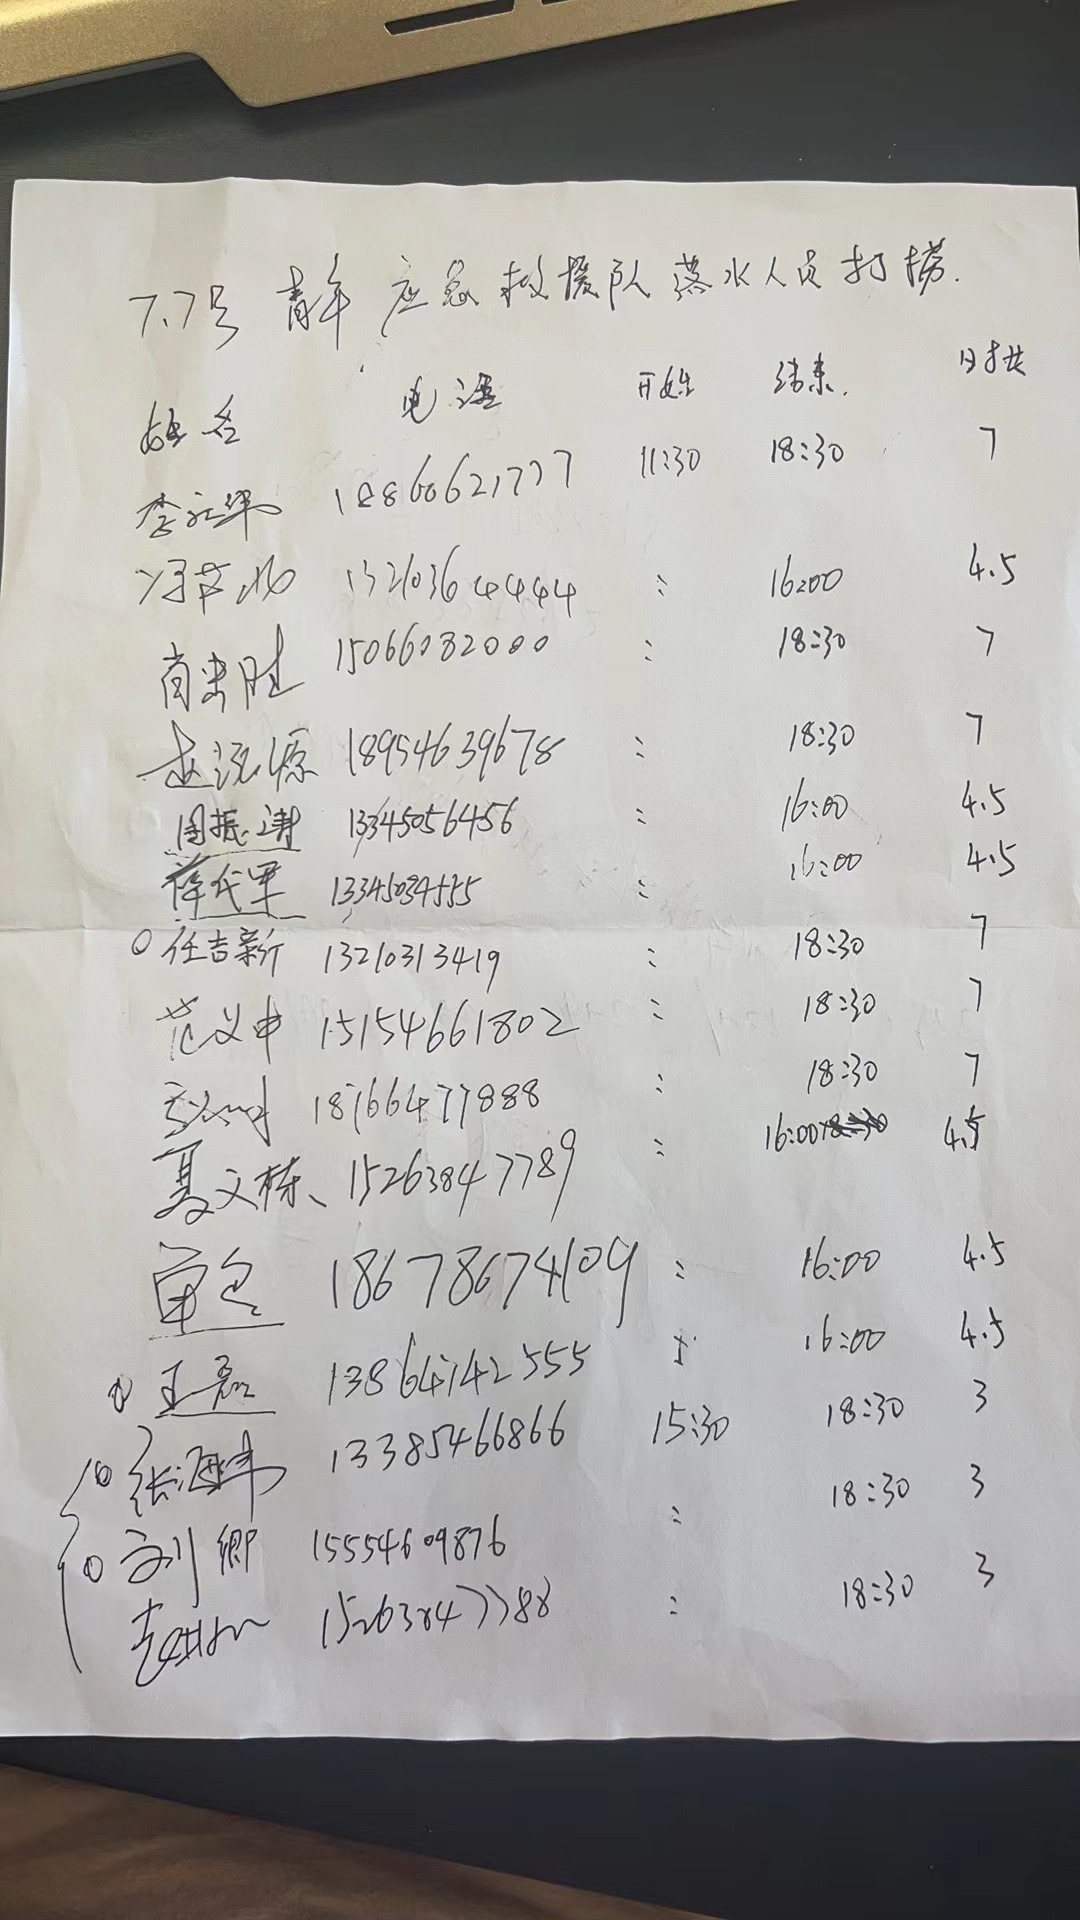 7.7号 青年应急救援队落水人员打捞.
姓名 电话 开始 结束. 时长
李 18860621777 11:30 18:30 7
冯 13210364444 : 16:00 4.5
肖 胜 15066082000 : 18:30 7
赵 源 18954639678 : 18:30 7
周振涛 13345056456 : 16:00 4.5
薛代军 13345034555 : 16:00 4.5
任吉新 13210313419 : 18:30 7
范义申 15154661802 : 18:30 7
18766477888 : 18:30 7
夏文栋、 15263847789 : 16:00 4.5
18678674109 : 16:00 4.5
王磊 13864142555 : 16:00 4.5
张海 13385466866 15:30 18:30 3
刘卿 15554609876 : 18:30 3
15263847788 : 18:30 3